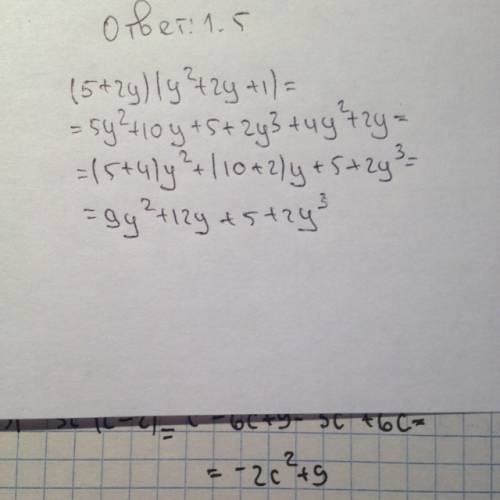 Ответ: 1.5
(5+2y)(y²+2y+1)=
=5y²+10y+5+2y³+4y²+2y=
=(5+4)y²+(10+2)y+5+2y³=
=9y²+12y+5+2y³
+6c=
= -2c²+9